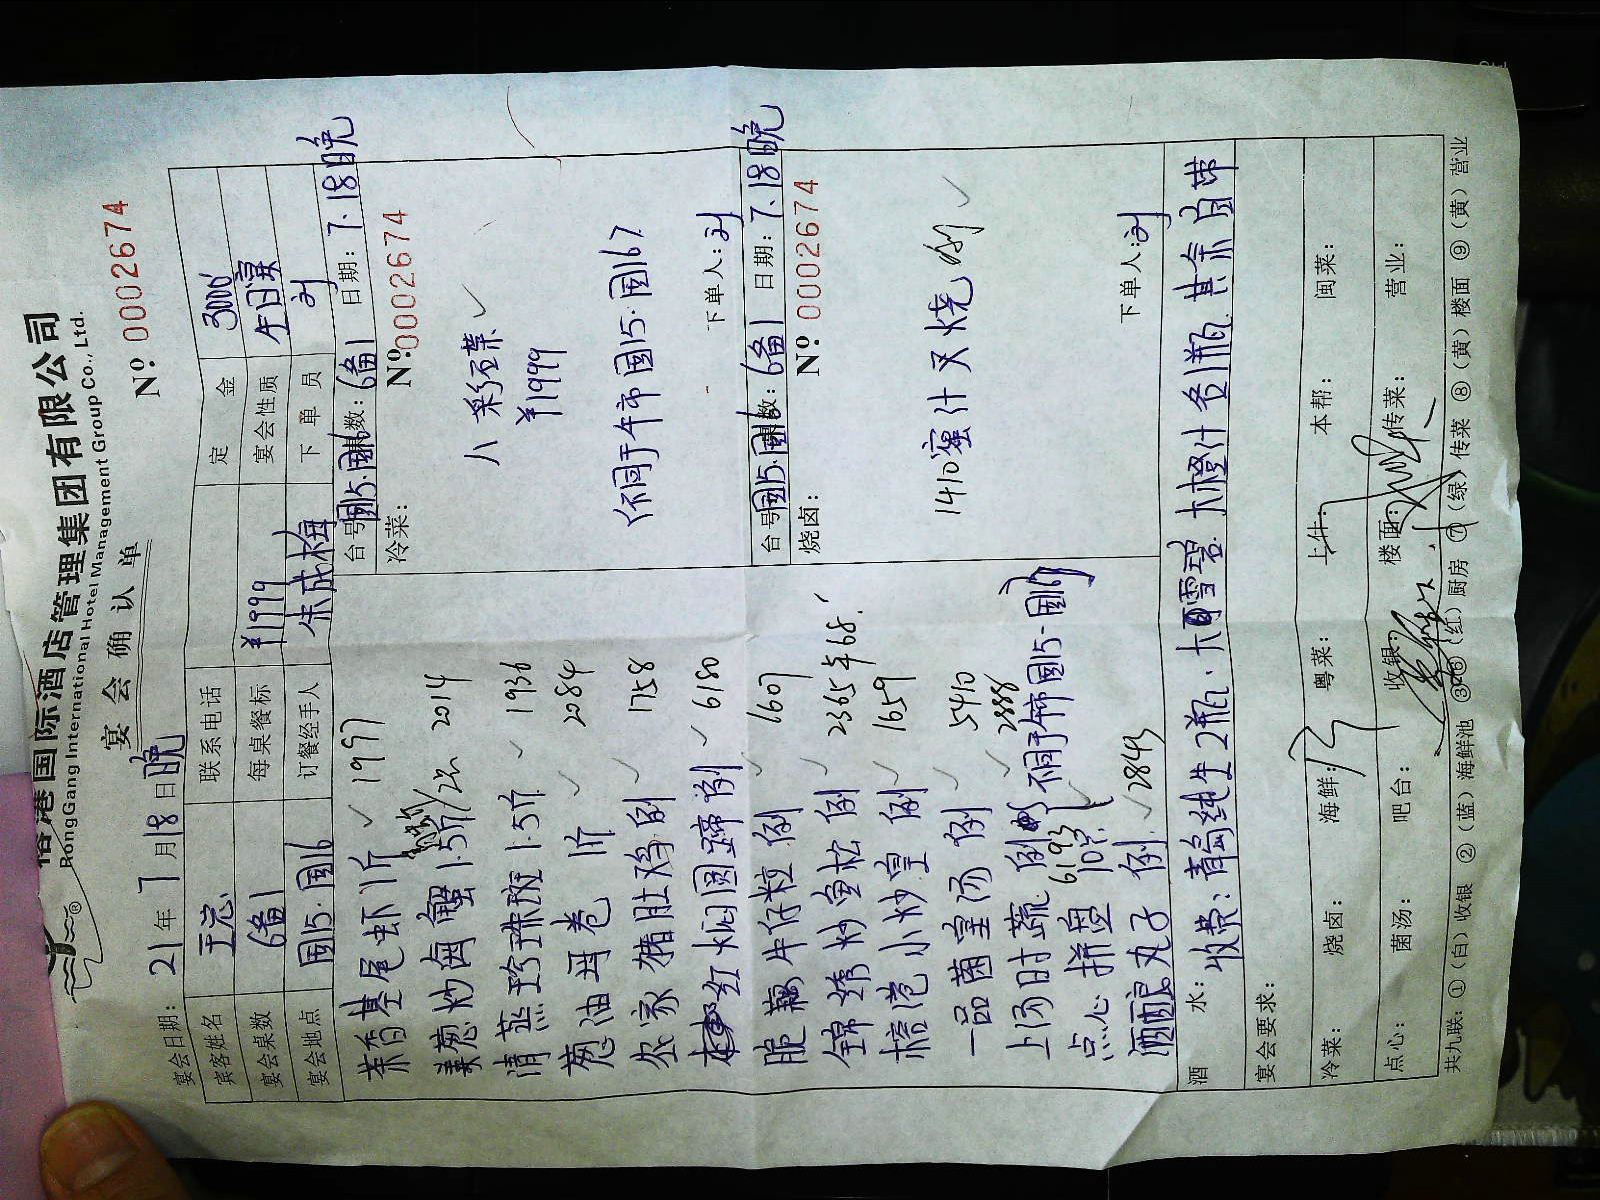 榕港国际酒店管理集团有限公司
RongGang International Hotel Management Group Co., Ltd.
宴会确认单
№ 0002674
宴会日期: 21年7月18日晚
宾客姓名 联系电话 定金 3000
宴会桌数 6备1 每桌餐标 ¥1999 宴会性质 生日宴
宴会地点 國15.國16 订餐经手人 朱成梅 下单员 刘
茶香基尾虾1斤 1997
姜葱炒海蟹1.5斤/2只 2014
清蒸珍珠斑1.5斤 1936
葱油耳卷 1斤 2084
农家猪肚鸡例 1758
红焖圆蹄例 6180
脆藕牛仔粒例 1607
锦绣炒鱼松例 2365
榕港小炒皇例 1659
一品菌皇汤例 5410
上汤时蔬例 2888
点心拼盘 6193 10只 不同于午市國15.國16
酒酿丸子例 2843
台号 國15.國16 桌数: 6备1 日期: 7.18晚
冷菜: № 0002674
八彩碟
¥1999
(不同于午市國15.國16)
下单人: 刘
台号 國15.國16 桌数: 6备1 日期: 7.18晚
烧卤: № 0002674
1410 蜜汁叉烧 例
下单人: 刘
酒水: 收费: 青岛纯生2瓶.大雪碧 大橙汁各1瓶 其余自带
宴会要求:
冷菜: 烧卤: 海鲜: 粤菜: 上什: 本帮: 闽菜:
点心: 菌汤: 吧台: 收银: 楼面: 传菜: 营业:
共九联: ①(白)收银 ②(蓝)海鲜池 ③④⑥(红)厨房 ⑦(绿)传菜 ⑧(黄)楼面 ⑨(黄)营业